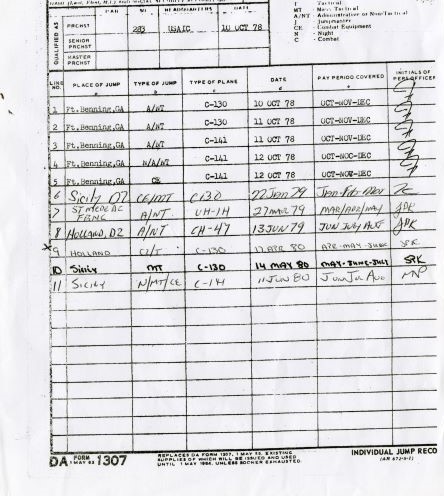 NAME (Last, First, M.I.) AND SOCIAL SECURITY ACCOUNT
QUALIFIED AS
PAR NO. HEADQUARTERS DATE
PRCHST 283 USAIC 10 OCT 78
SENIOR PRCHST
MASTER PRCHST
T - Tactical
MT - Mass Tactical
A/NT - Administrative or Non-Tactical
J - Jumpmaster
CE - Combat Equipment
N - Night
C - Combat
LINE NO. PLACE OF JUMP TYPE OF JUMP TYPE OF PLANE DATE PAY PERIOD COVERED INITIALS OF PERS OFFICER
1 Ft.Benning,GA A/NT C-130 10 OCT 78 OCT-NOV-DEC
2 Ft.Benning,GA A/NT C-130 11 OCT 78 OCT-NOV-DEC
3 Ft.Benning,GA A/NT C-141 11 OCT 78 OCT-NOV-DEC
4 Ft.Benning,GA N/A/NT C-141 12 OCT 78 OCT-NOC-DEC
5 Ft.Benning,GA CE C-141 12 OCT 78 OCT-NOV-DEC
6 Sicily DZ CE/MT C130 22 Jan 79 Jan-Feb-Mar
7 ST MERE DZ FBNC A/NT UH-1H 27 MAR 79 MAR/APR/MAY JPK
8 HOLLAND, DZ A/NT CH-47 13 JUN 79 JUN JULY AUG JPK
x 9 HOLLAND C-130 17 APR 80 APR-MAY-JUNE SPK
10 Sicily MT C-130 14 MAY 80 MAY-JUNE-JULY SPK
11 SICILY N/MT/CE C-141 11 JUN 80 Jun Jul Aug
DA FORM 1 MAY 63 1307
REPLACES DA FORM 1307, 1 MAY 53, EXISTING
SUPPLIES OF WHICH WILL BE ISSUED AND USED
UNTIL 1 MAY 1964, UNLESS SOONER EXHAUSTED.
INDIVIDUAL JUMP RECO
(AR 672-5-1)